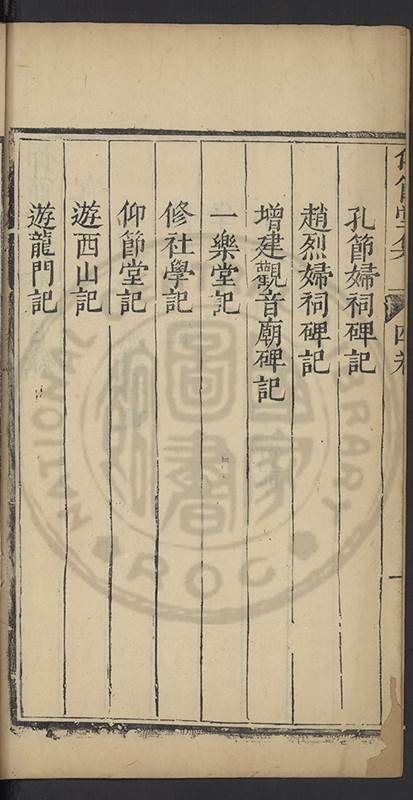 孔節婦祠碑記
趙烈婦祠碑記
增建觀音廟碑記
一樂堂記
修社學記
仰節堂記
遊西山記
遊龍門記